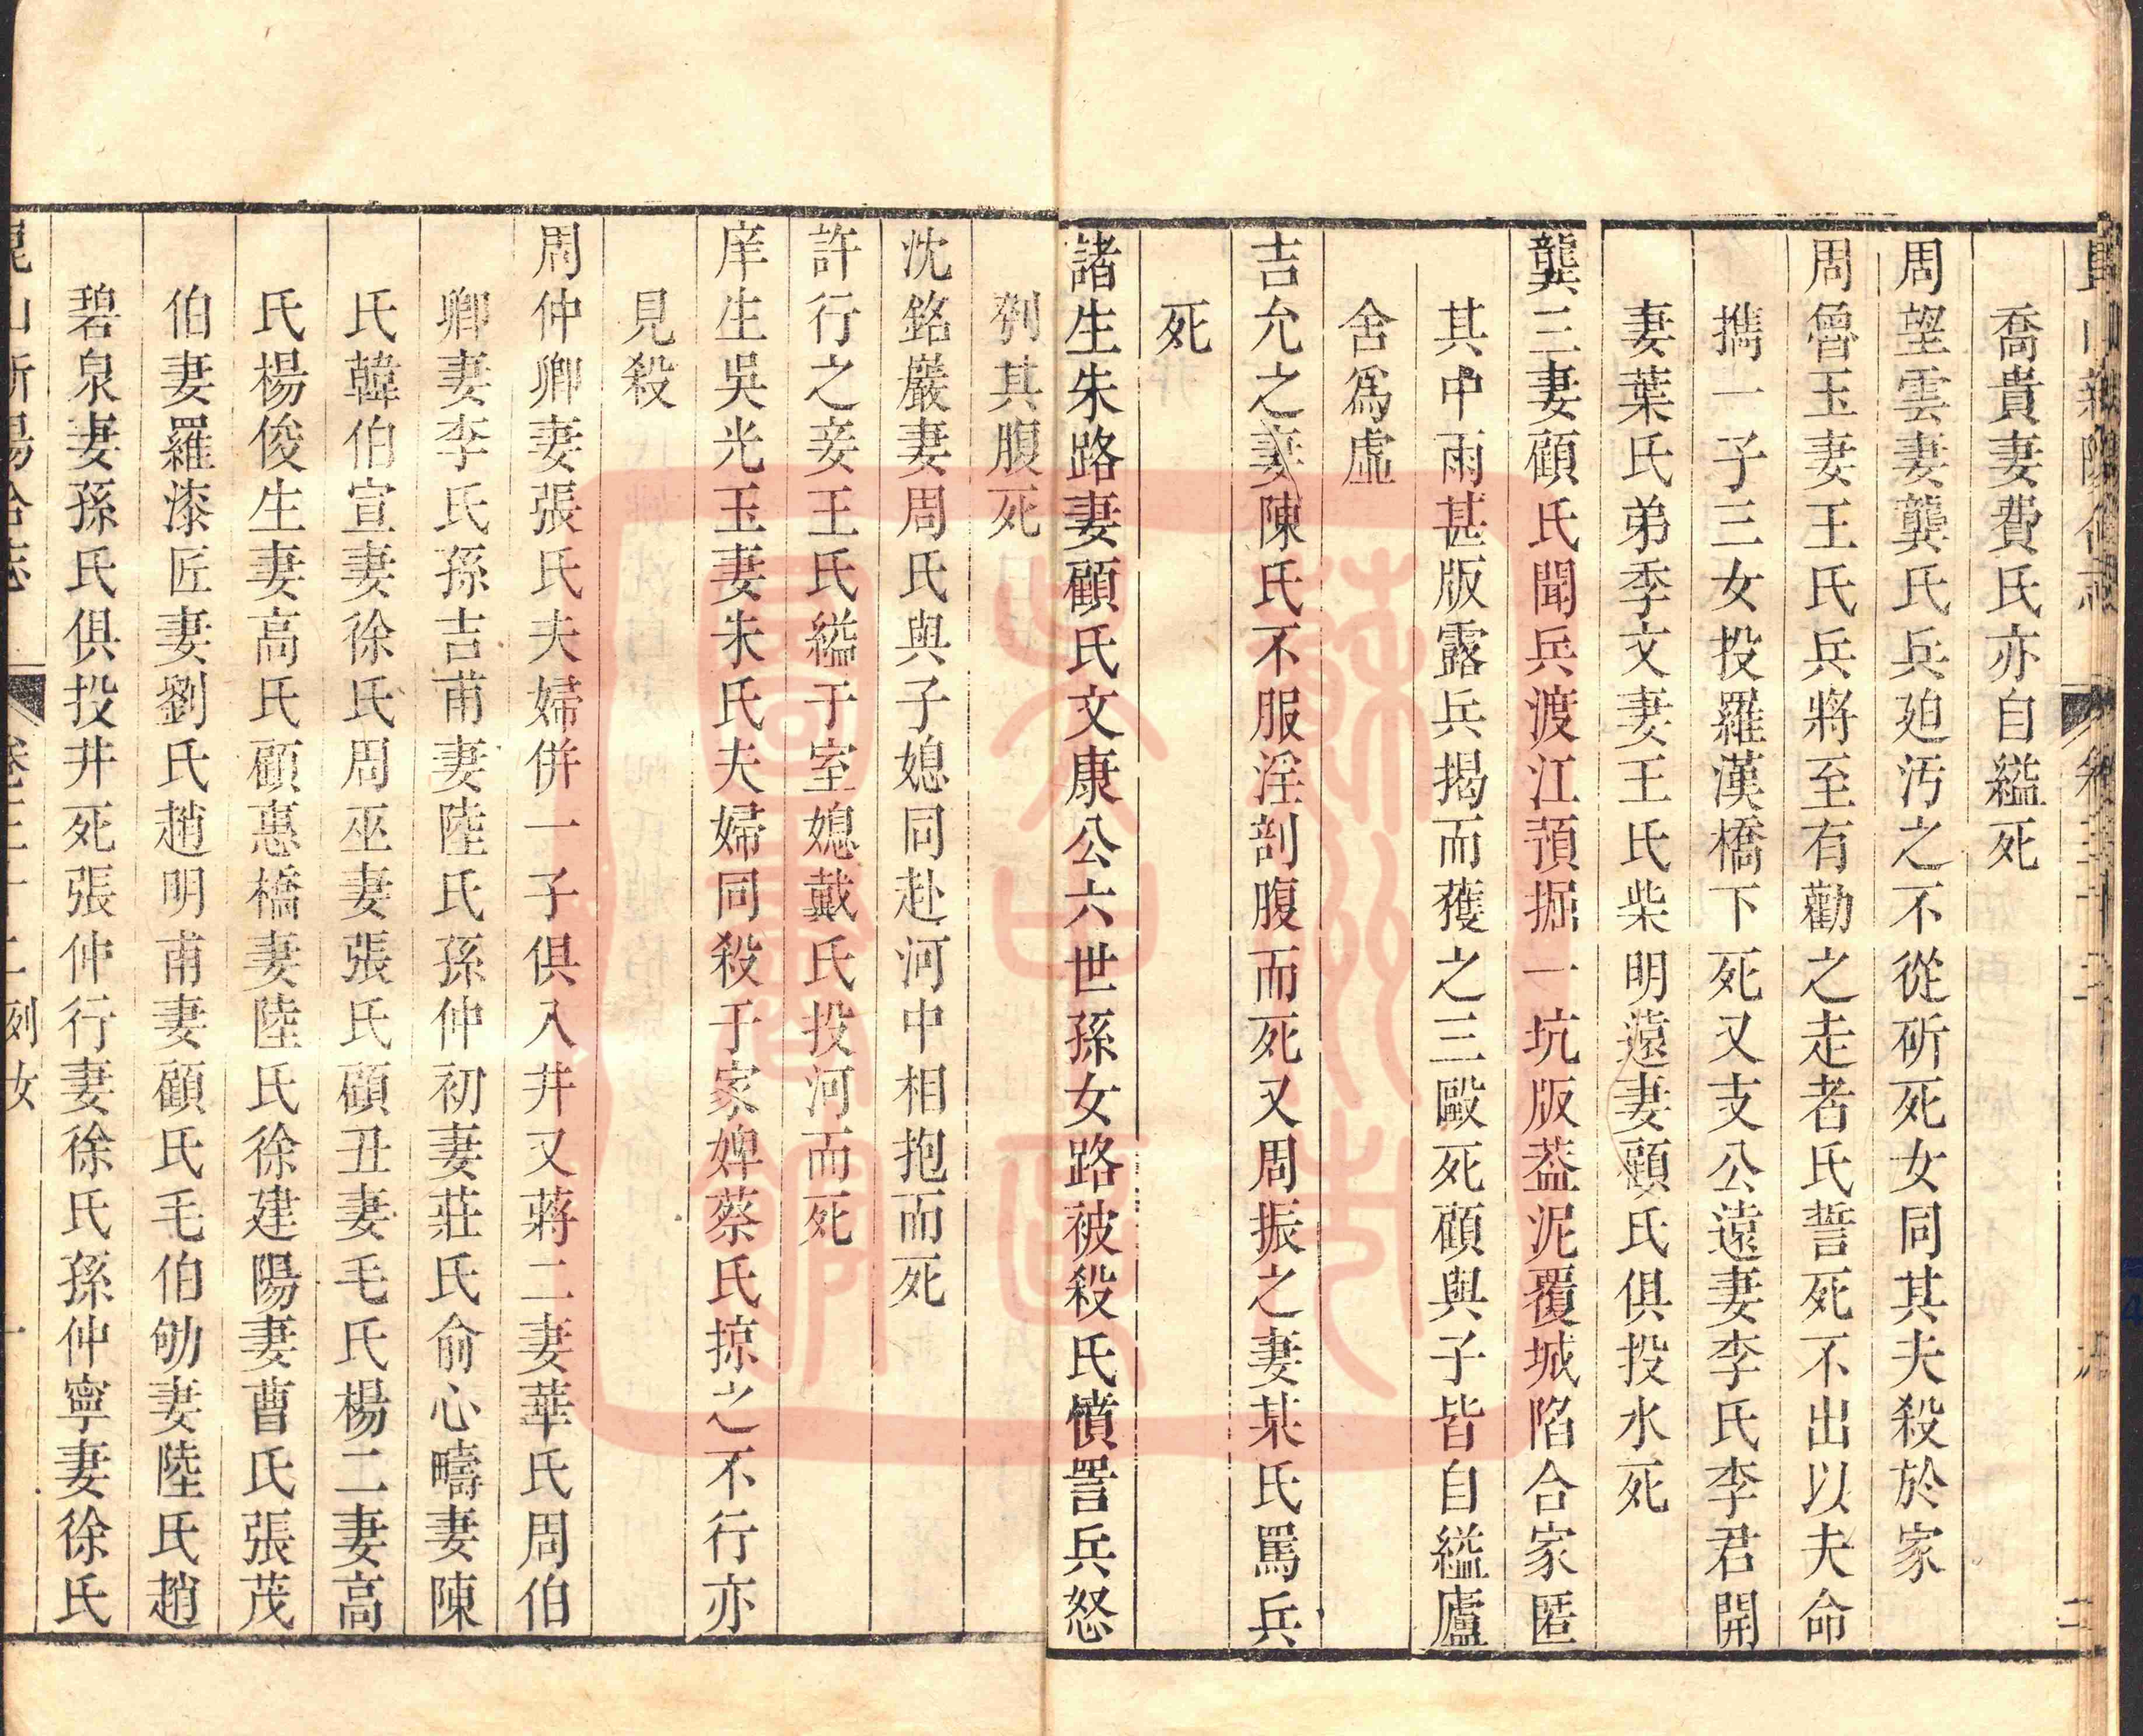 喬貴妻費氏亦自縊死
周望雲妻龔氏兵廹汚之不從斫死女同其夫殺於家
周曾玉妻王氏兵將至有勸之走者氏誓死不出以夫命
擕一子三女投羅漢橋下死又支公遠妻李氏李君開
妻葉氏弟季文妻王氏柴明遠妻顧氏俱投水死
龔三妻顧氏聞兵渡江預掘一坑版葢泥覆城陷合家匿
其中雨甚版露兵揭而獲之三毆死顧與子皆自縊廬
舍爲虛
吉允之妻陳氏不服淫剖腹而死又周振之妻某氏罵兵
死
諸生朱路妻顧氏文康公六世孫女路被殺氏憤詈兵怒
刳其腹死
沈銘嚴妻周氏與子媳同赴河中相抱而死
許行之妾王氏縊于室媳戴氏投河而死
庠生吳光玉妻朱氏夫婦同殺于家婢蔡氏掠之不行亦
見殺
周仲卿妻張氏夫婦併一子俱入井又蔣二妻華氏周伯
卿妻李氏孫吉甫妻陸氏孫仲初妻莊氏俞心疇妻陳
氏韓伯宣妻徐氏周巫妻張氏顧丑妻毛氏楊二妻高
氏楊俊生妻高氏顧惠橋妻陸氏徐建陽妻曹氏張茂
伯妻羅漆匠妻劉氏趙明甫妻顧氏毛伯妻陸氏趙
碧泉妻孫氏俱投井死張仲行妻徐氏孫仲寧妻徐氏